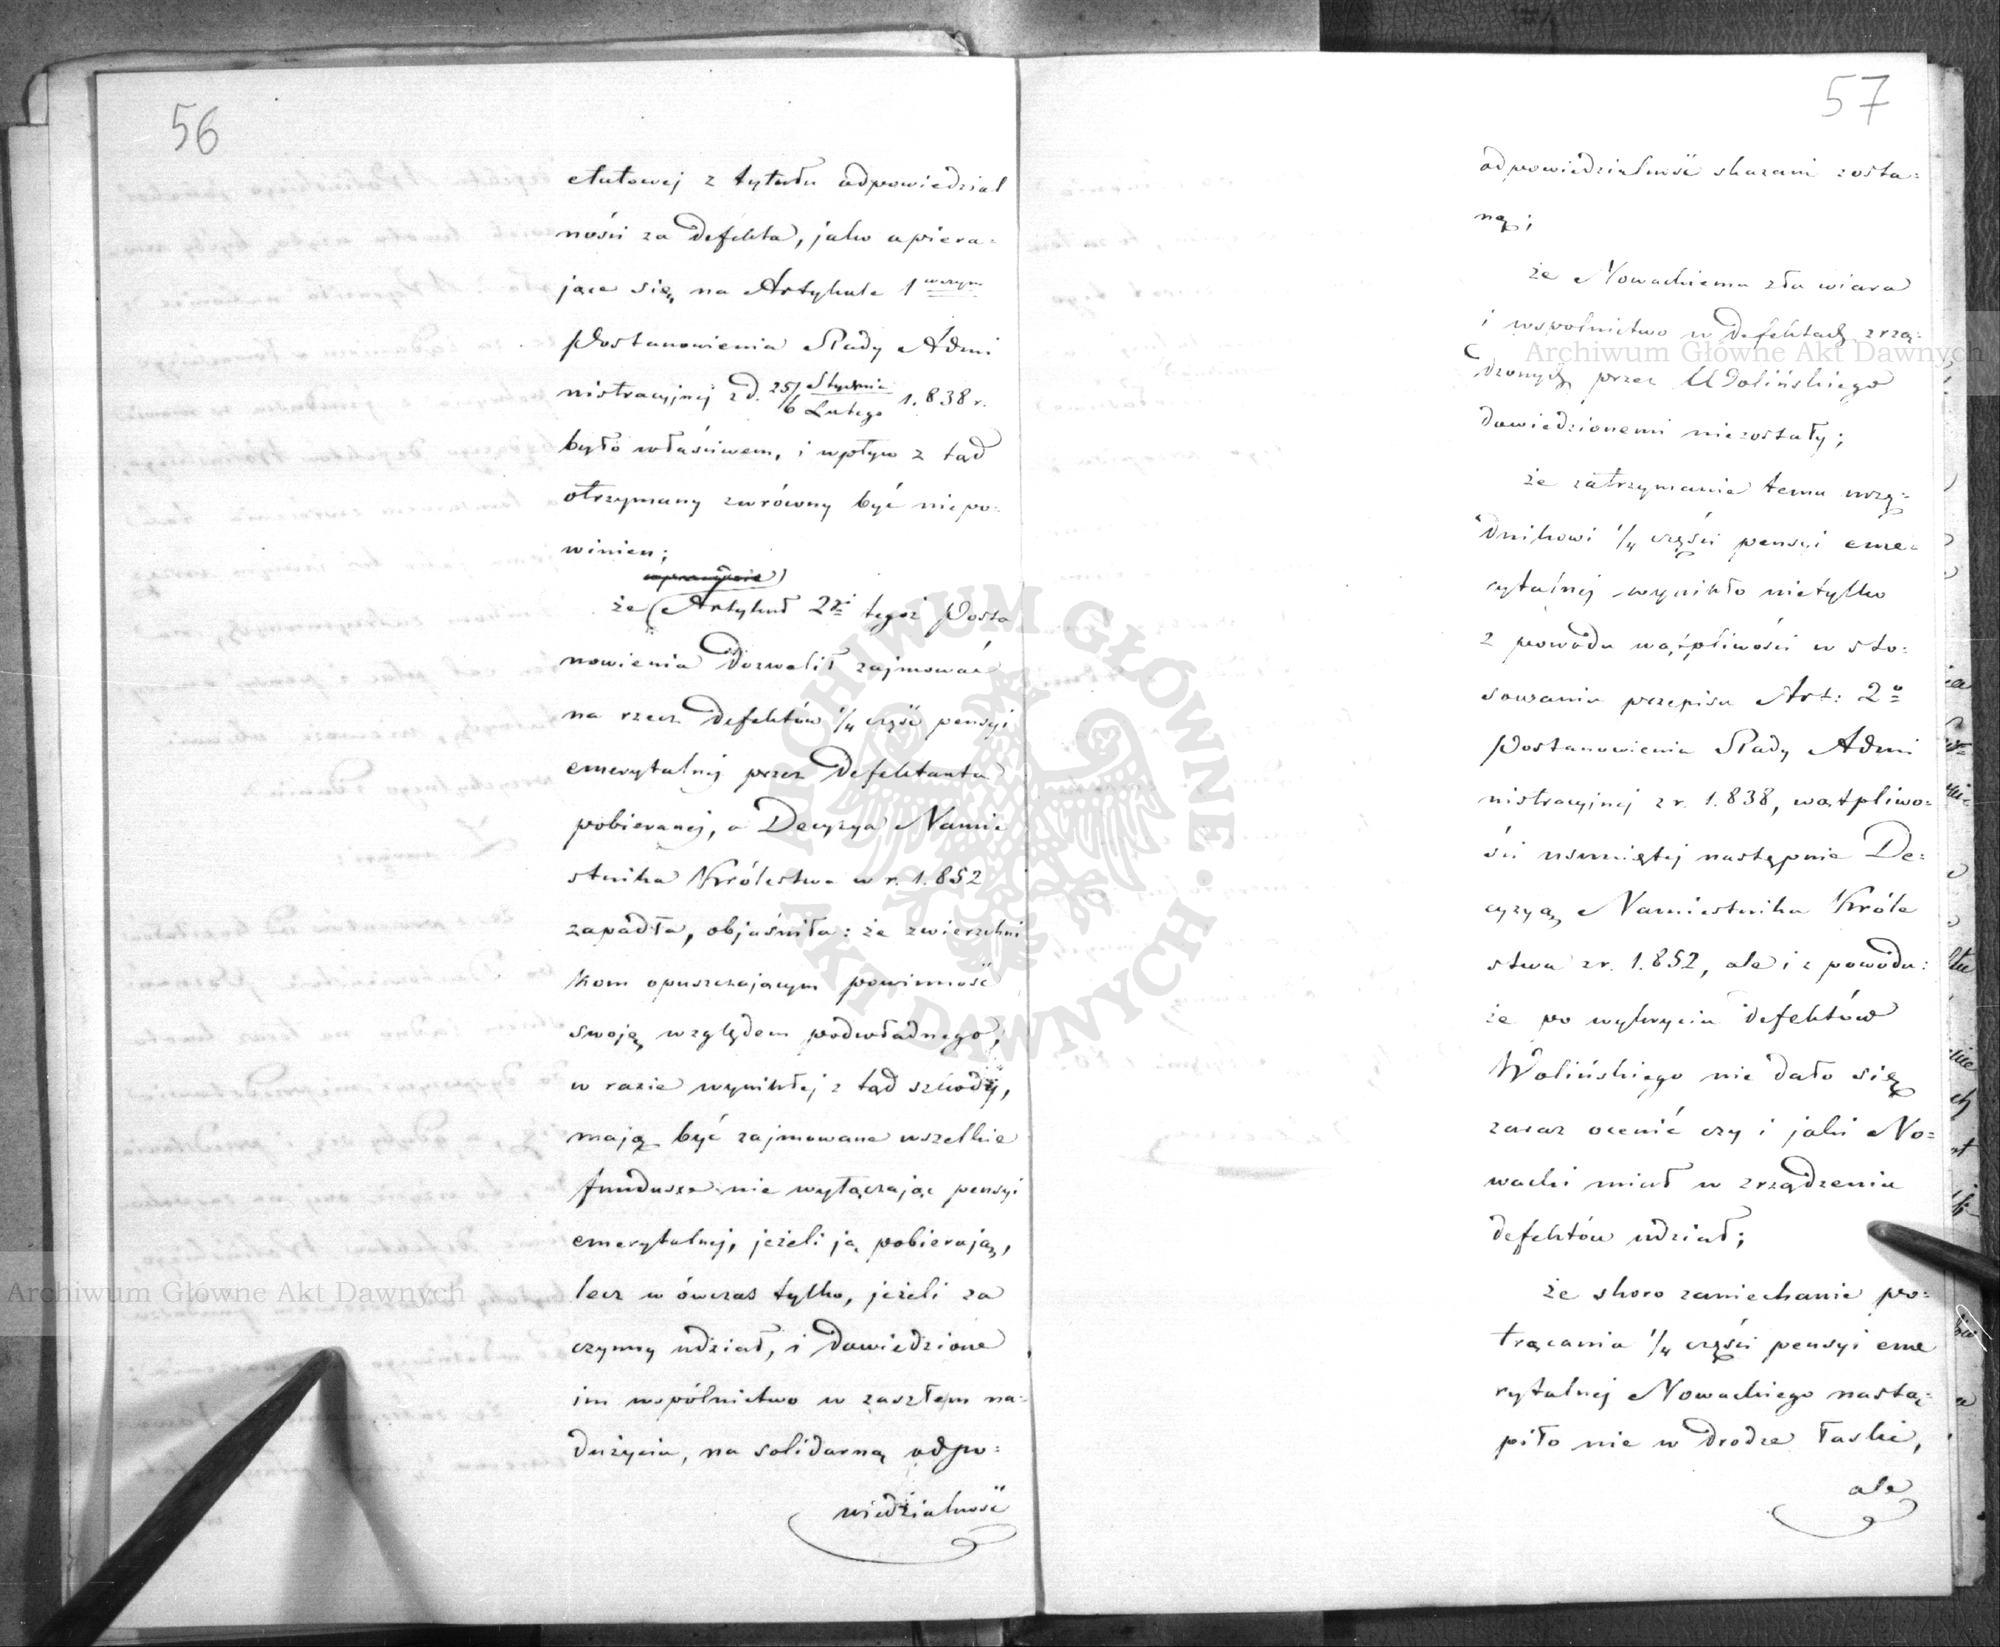 56
etatowej z tytułu odpowiedzial
ności za defekta, jako opiera-
jące się na Artykule 1 wszym
Postanowienia Rady Admi
nistracyjnej z d. 25/6 Stycznia/Lutego 1.838 r.
było właściwem, i wpływ z tąd
otrzymany zwrócony być niepo-
winien;
że Artykuł 2gi tegoż Posta
nowienia dozwolił zajmować
na rzecz defektów 1/4 część pensyi
emerytalnej przez defektanta
pobieranej, a Decyzya Namie
stnika Królestwa w r. 1.852
zapadła, objaśniła: że zwierzchni
kom opuszczającym powinność
swoją względem podwładnego,
w razie wynikłej z tąd szkody,
mają być zajmowane wszelkie
fundusze nie wyłączając pensyi
emerytalnej, jeżeli ją pobierają,
lecz w ówczas tylko, jeżeli za
czynny udział, i dowiedzione
im wspólnictwo w zaszłem na-
dużyciu, na solidarną odpo-
wiedzialność
57
odpowiedzialność skazani zosta-
ną;
że Nowackiemu zła wiara
i wspólnictwo w defektach zrzą-
dzonych przez Wolińskiego
dowiedzionemi niezostały;
że zatrzymanie temu urzę-
dnikowi 1/4 części pensyi eme-
rytalnej wynikło nietylko
z powodu wątpliwości w sto-
sowaniu przepisu Art: 2o
Postanowienia Rady Admi
nistracyjnej z r. 1.838, wątpliwo-
ści usuniętej następnie De-
cyzyą Namiestnika Króle
stwa z r. 1.852, ale i z powodu:
że po wykryciu defektów
Wolińskiego nie dało się
zaraz ocenić czy i jaki No-
wacki miał w zrządzeniu
defektów udział;
że skoro zaniechanie po-
trącania 1/4 części pensyi eme
rytalnej Nowackiego nastą-
piło nie w drodze łaski,
ale
ARCHIWUM GŁÓWNE AKT DAWNYCH
Archiwum Główne Akt Dawnych
Archiwum Główne Akt Dawnych